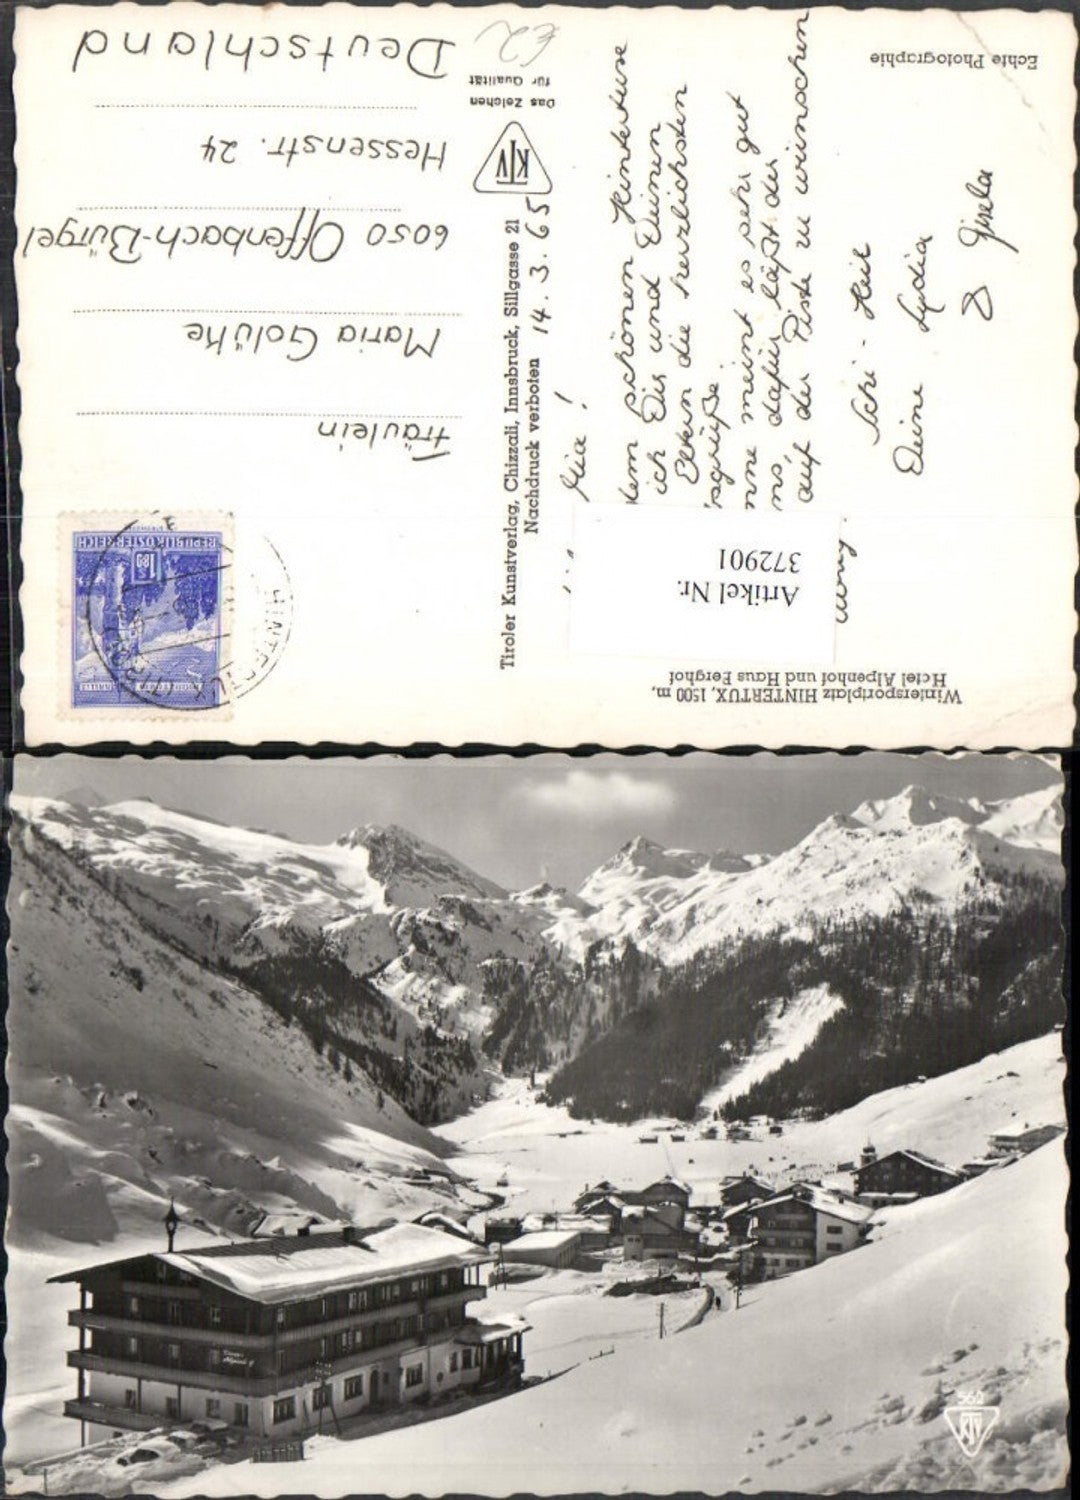 Winiersportplatz HINTERTUX, 1500 m,
Hotel Alpenhof und Haus Berghof
Artikel Nr.
372901
14. 3. 65
Mia!
dem schönen Hintertuxe
ich Dir und Deinen
Eltern die herzlichsten
sgrüße.
nne meint es sehr gut
ns, dafür läßt der
auf der Piste zu wünschen
Schi-Heil
Deine Lydia
& Gisela
Echte Photographie
Tiroler Kunstverlag, Chizzali, Innsbruck, Sillgasse 21
Nachdruck verboten
KTV
Das Zeichen
für Qualität
€2
REPUBLIK ÖSTERREICH
S 1.80
HINTERTUX (TIROL)
Fräulein
Maria Golüke
6050 Offenbach-Bürgel
Hessenstr. 24
Deutschland
560
KTV